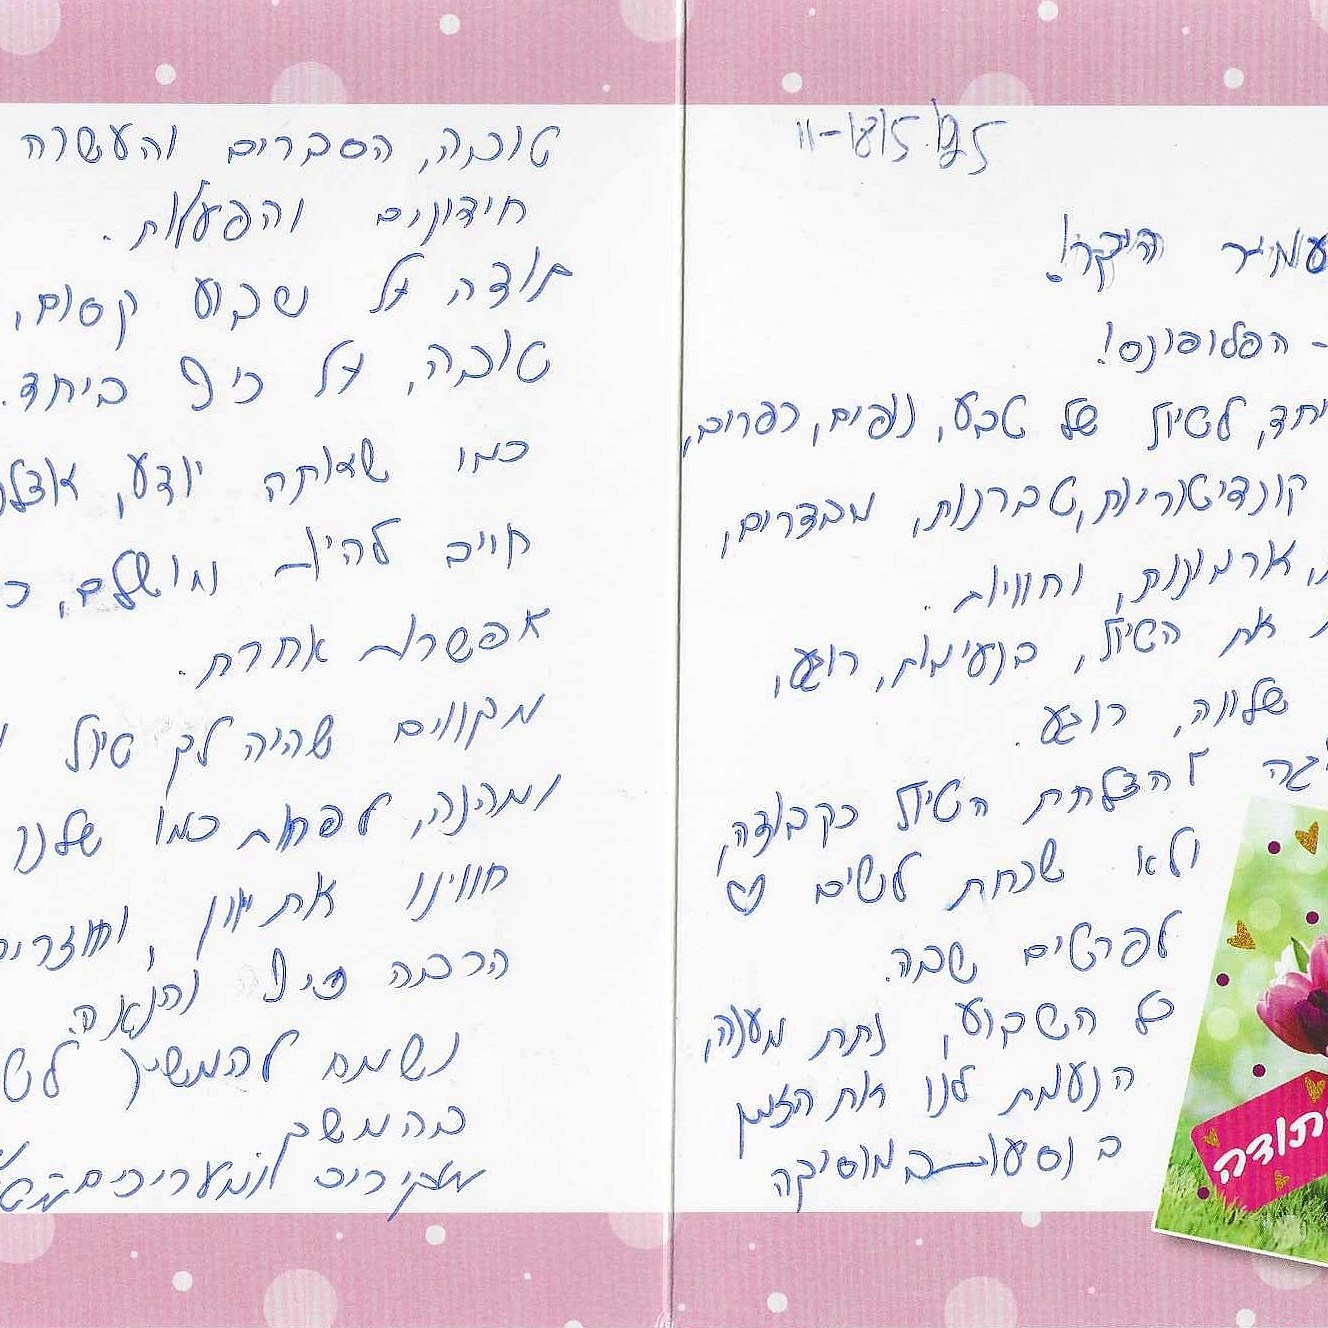 11-18/5/25
עומר היקר!
- הפלופונס!
יחד, לטיול של טבע, נופים, כפרים,
קונדיטוריות, טברנות, מבצרים,
ארמונות, וחוויות.
את הטיול, בנעימות, רוגע,
שלווה, רוגע.
להצלחת הטיול כקבוצה,
ולא שכחת לשים ♡
לפרטים שבה.
כל השבוע, נתת מענה,
הנעמת לנו את הזמן
בנסיעות במוסיקה
תודה
טובה, הסברים והעשרה
חידונים והפעלות.
תודה על שבוע קסום,
טובה, על כיף ביחד.
כמו שאתה יודע, אצלנו
חייב להיות מושלם,
אפשרות אחרת.
מקווים שהיה לך טיול
ומהנה, לפחות כמו שלנו
חווינו את יוון,
הרבה כיף והנאה.
נשמח להמשיך
בהמשך.
מוקירים ומעריכים